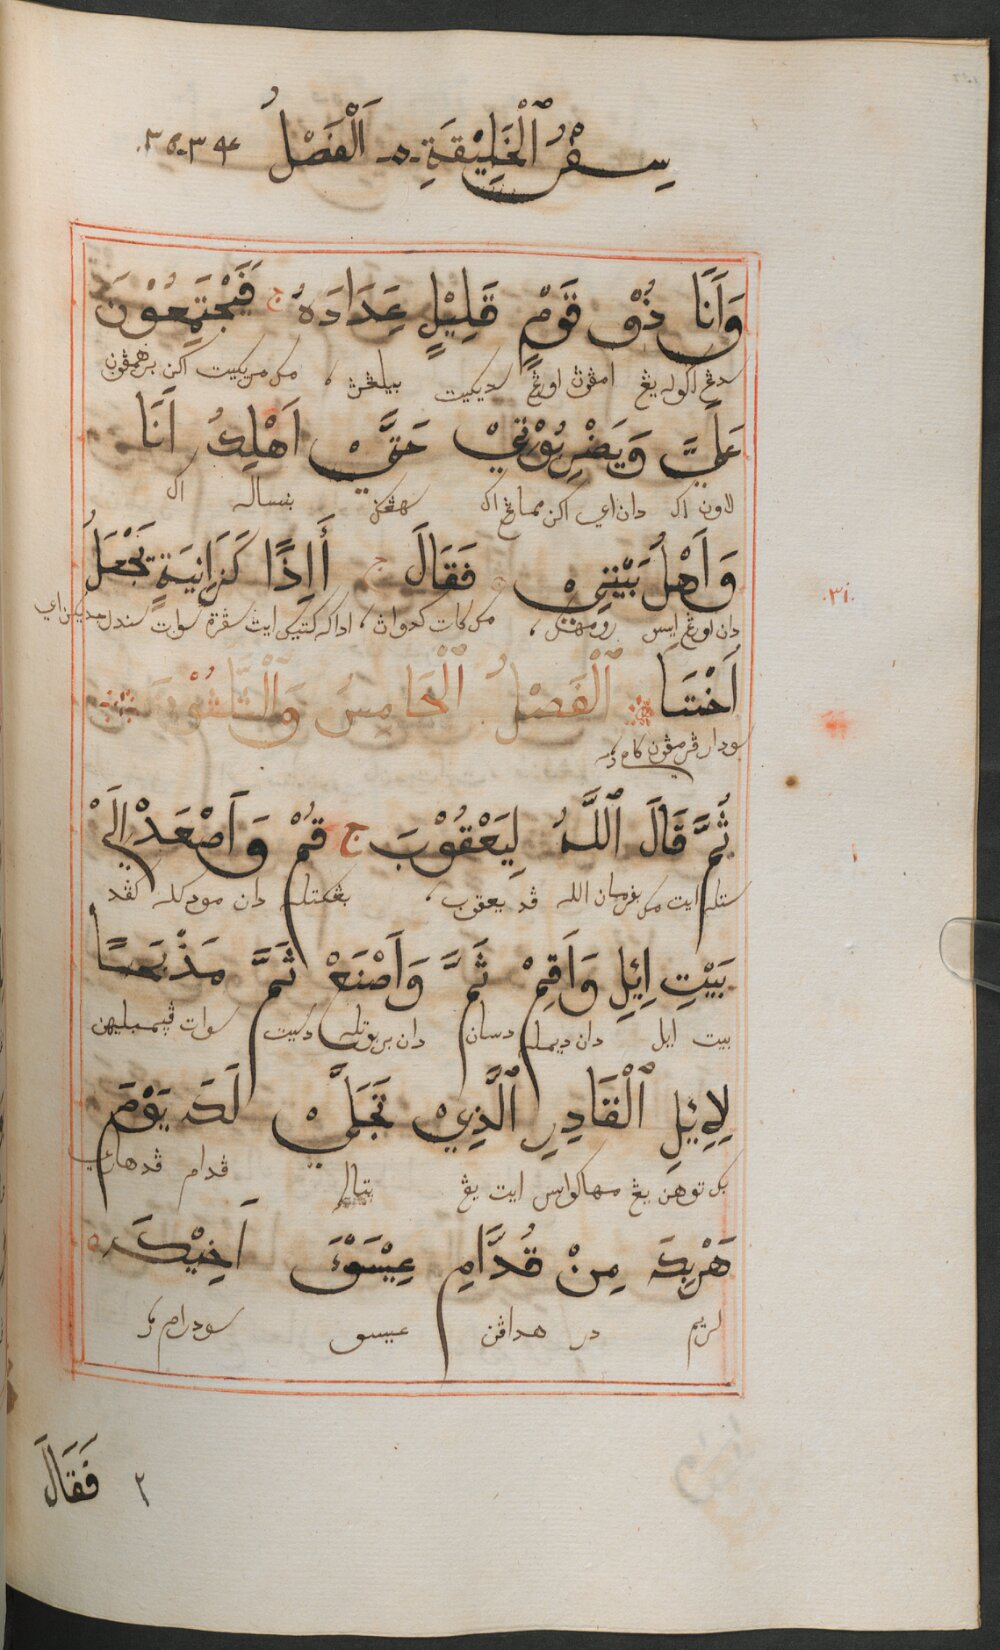 سِفْرُ ٱلْخَلِيْقَةِ ۔٥۔ اَلْفَصْلُ ٣٤ ۔ ٣٥
وَاَنَا ذُوْ قَوْمٍ قَلِيْلٍ عَدَادَهُ ج فَيَجْتَمِعُوْنَ
سدڠ اكوله يڠ امڤون اورڠ سديكيت بيلڠن، مك مريكيت اكن برهمڤون
عَلَيَّ وَيَضْرِبُوْنِيْ حَتَّيْ اَهْلِكُ اَنَا
لاون اكو دان اي اكن ممالڠ اك سهڠك بنساله اك
وَاَهْلُ بَيْتِيْ ٥ فَقَالَ ج أَاِذًا كَزَانِيَةٍ تَجْعَلُ
دان اورڠ ايسي رومهك، مك كات كدوان، اداكه كتيك ايت سڤرة سوات سندل جديكن اي
.٣١.
اَخْتَنَا ۞ ٱلْفَصْلُ ٱلْخَامِسُ وَٱلثَّلٰثُوْنَ
سودار ڤرمڤون كام
ثُمَّ قَالَ ٱللَّهُ لِيَعْقُوْبَ ج قُمْ وَاَصْعَدْ اِلَيْ
ستله ايت مك برفرمان الله ڤد يعقوب، بڠكتله دان مودكله كڤد
بَيْتِ اِئِلِ وَاَقِمْ ثَمَّ وَاَصْنَعْ ثَمَّ مَذْبَحًا
بيت ايل دان ديمله دسان دان بربوتله دسيت سوات ڤمبليهن
لِاِئِلِ ٱلْقَادِرِ ٱلَّذِيْ تَجَلَّيْ لَكَ يَوْمَ
بك توهن يڠ مهاكواس ايت يڠ ڤدام ڤد هاري
هَرْبِكَ مِنْ قُدَّامِ عِيْسَوْءَ اَخِيْكَ ٥
لريم در هداڤن عيسو سودرام
٢ فَقَالَ